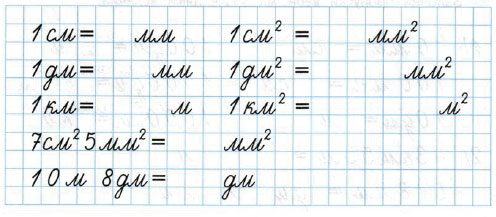 1 см = мм 1 см² = мм²
1 дм = мм 1 дм² = мм²
1 км = м 1 км² = м²
7 см² 5 мм² = мм²
10 м 8 дм = дм